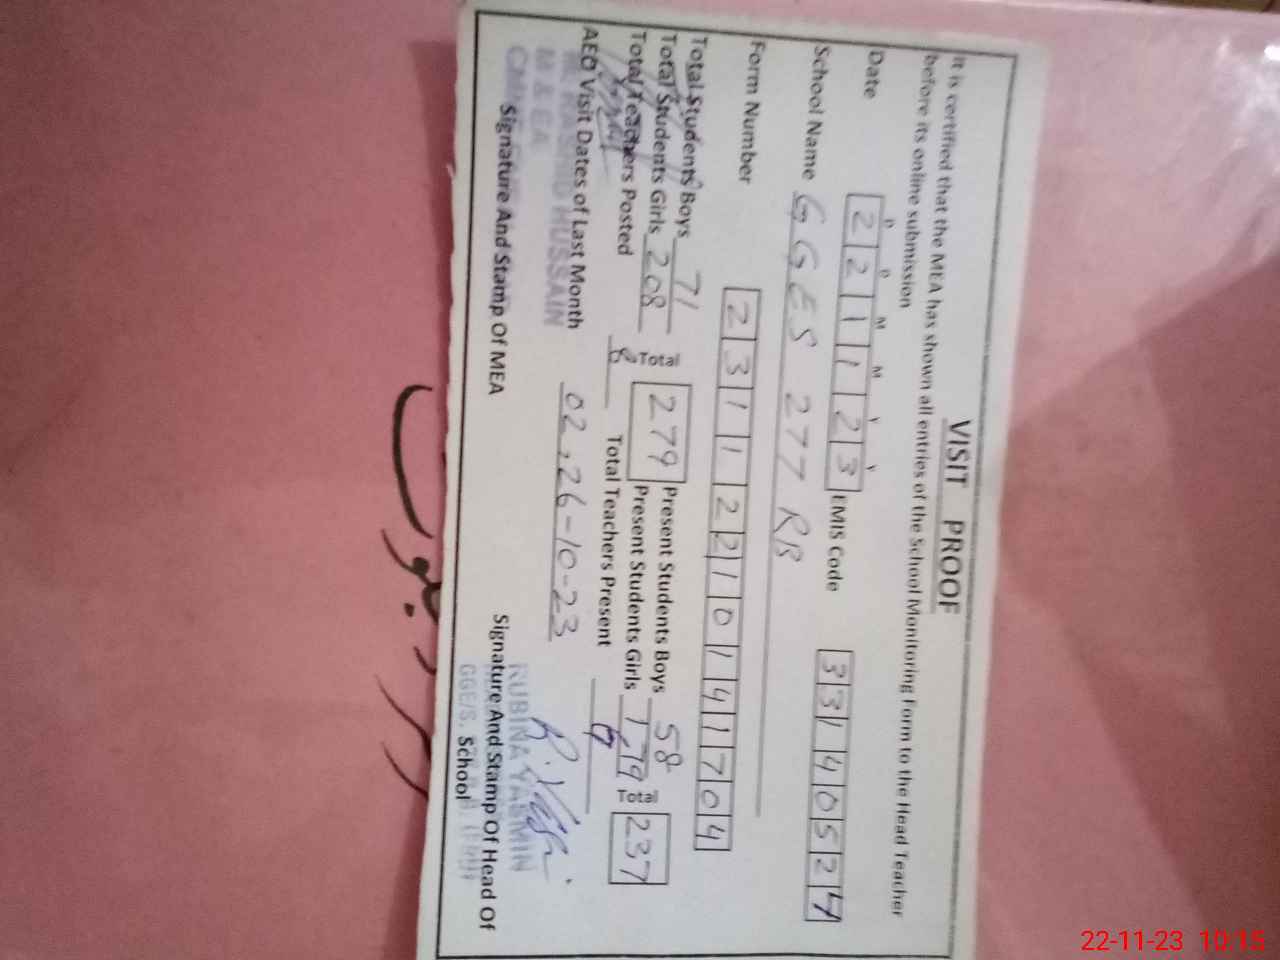 VISIT PROOF
It is certified that the MEA has shown all entries of the School Monitoring Form to the Head Teacher
before its online submission
D D M M Y Y
Date 2 2 1 1 2 3 EMIS Code 3 3 1 4 0 5 2 4
School Name GGES 277 RB
Form Number 2 3 1 1 2 2 1 0 1 4 1 7 0 4
Total Students Boys 71 Total 279 Present Students Boys 58 Total 237
Total Students Girls 208 Present Students Girls 179
Total Teachers Posted 6 Total Teachers Present
AEO Visit Dates of Last Month 02, 26-10-23
HUSSAIN
M & EA
RUBINA YASMIN
Signature And Stamp Of MEA
Signature And Stamp Of Head Of
School
GGE/S.
22-11-23 10:15